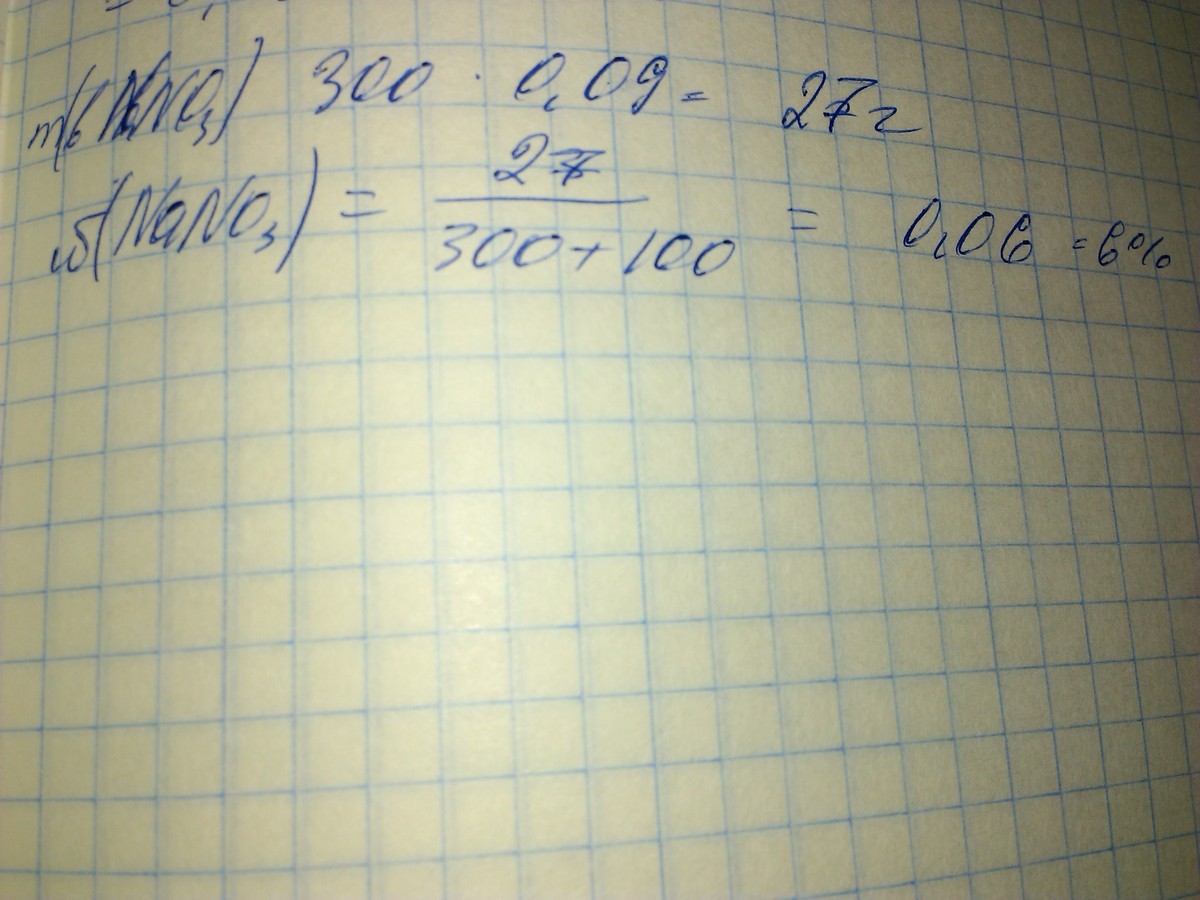 m(NaNO3) 300 · 0,09 = 27г
ω(NaNO3) = 27 / 300+100 = 0,06 = 6%